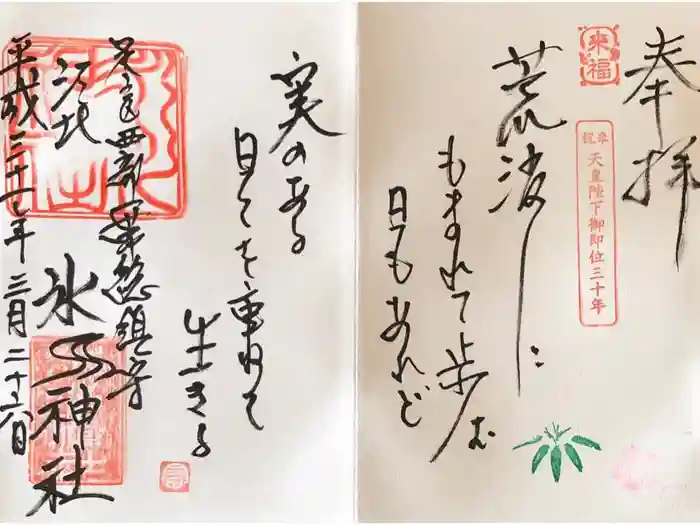 奉拝
来福
奉祝
天皇陛下御即位三十年
荒波に
もまれて歩む
日もあれど
実のある
日々を重ねて
生きる
足立区西部 総鎮守
江北
氷川神社
平成三十一年三月二十六日